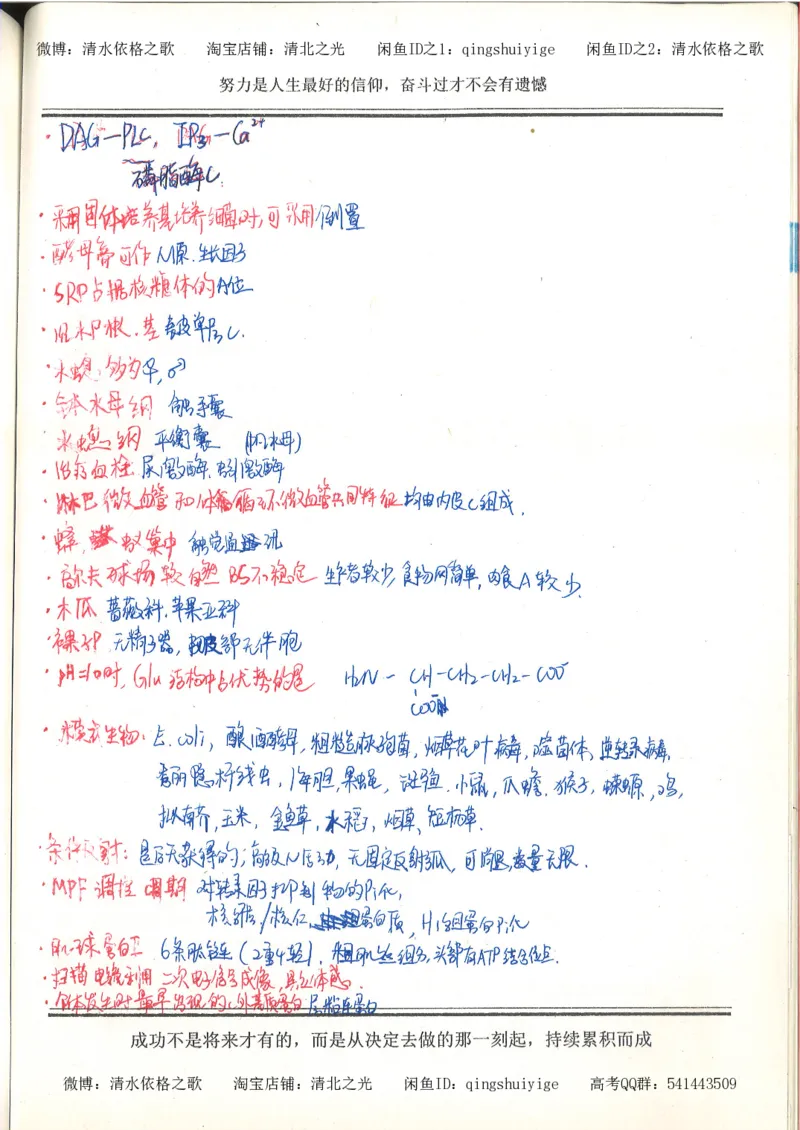 微博：清水依格之歌 淘宝店铺：清北之光 闲鱼ID之1：qingshuiyige 闲鱼ID之2：清水依格之歌
努力是人生最好的信仰，奋斗过才不会有遗憾
· DAG—PLC, IP3—Ca2+
磷脂酶C.
· 采用固体培养基培养细菌时,可采用倒置
· 酵母膏可作N源.生长因子
· SRP占据核糖体的A位
表皮
· 水螅:
钵水母纲 触手囊
水螅纲 平衡囊 (水母)
· 治疗血栓 尿激酶.
· 淋巴微血管和体循环微血管共同特征 均由内皮C组成.
· 蜂, 蚁集中 触觉通讯
· 高尔夫球场较自然BS不稳定 生产者较少,食物网简单,肉食A较少.
· 木瓜 蔷薇科.苹果亚科
· 裸子P 无精子器, 韧皮部无伴胞
· pH=10时, Glu结构中占优势的是 H2N - CH-CH2-CH2-COO-
COO-
· 模式生物: E.coli, 酿酒酵母, 粗糙脉孢菌, 烟草花叶病毒, 噬菌体, 逆转录病毒,
秀丽隐杆线虫, 海胆,果蝇, 斑马鱼.小鼠,爪蟾.猴子,蝾螈,鸡,
拟南芥,玉米, 金鱼草,水稻,烟草,短柄草.
· 条件反射: 是后天获得的; 高级N活动, 无固定反射弧, 可消退,数量无限.
· MPF调控周期 对转录因子抑制物的Pi化,
核纤层/核仁 蛋白质, H1组蛋白Pi化
· 肌球蛋白Ⅱ 6条肽链(2重4轻), 粗肌丝组分,头部有ATP结合位点.
· 扫描电镜利用 二次电子信号成像,具立体感.
· 个体发生时最早出现的外基质蛋白 层粘连蛋白
成功不是将来才有的，而是从决定去做的那一刻起，持续累积而成
微博：清水依格之歌 淘宝店铺：清北之光 闲鱼ID：qingshuiyige 高考QQ群：541443509